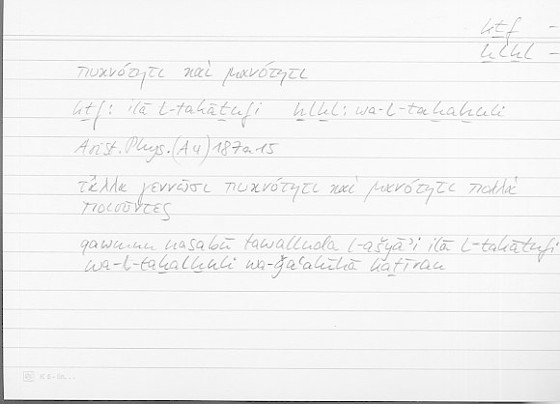 kṯf –
ḫlḫl –
πυκνότητι καὶ μανότητι
kṯf: ilā l-takāṯufi ḫlḫl: wa-l-taḫalḫuli
Arist. Phys. (A4) 187a15
τἆλλα γεννῶσι πυκνότητι καὶ μανότητι πολλὰ
ποιοῦντες
qawmun nasabū tawalluda l-ašyāʾi ilā l-takāṯufi
wa-l-taḫalḫuli wa-ǧaʿalūhā kaṯīran